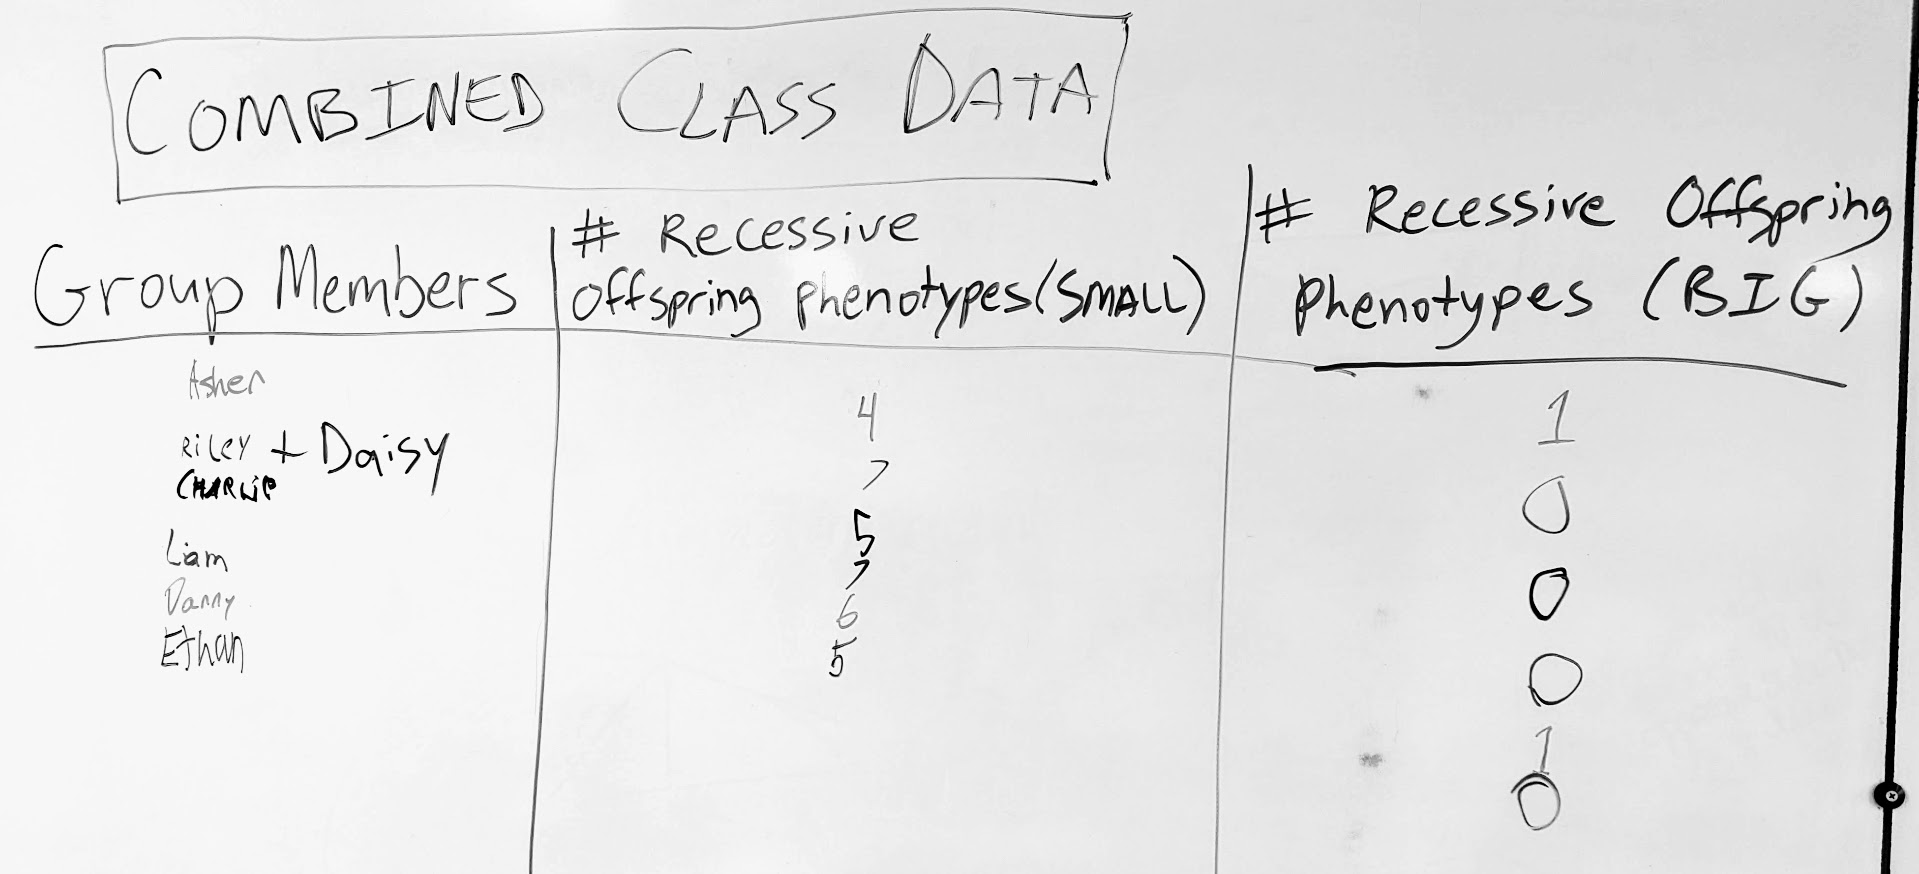 COMBINED CLASS DATA
Group Members
# Recessive
Offspring phenotypes (SMALL)
# Recessive Offspring
Phenotypes (BIG)
Asher
4
1
Riley + Daisy
7
0
CHARLIE
5
0
Liam
7
0
Danny
6
1
Ethan
5
0